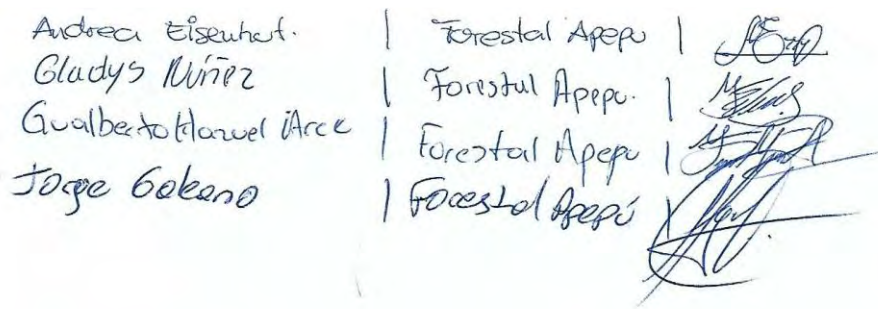 Andrea Eisenhut. | Forestal Apepu |
Gladys Núñez | Forestal Apepu. |
Gualberto Manuel Arce | Forestal Apepu |
Jorge Galeano | Forestal Apepú |